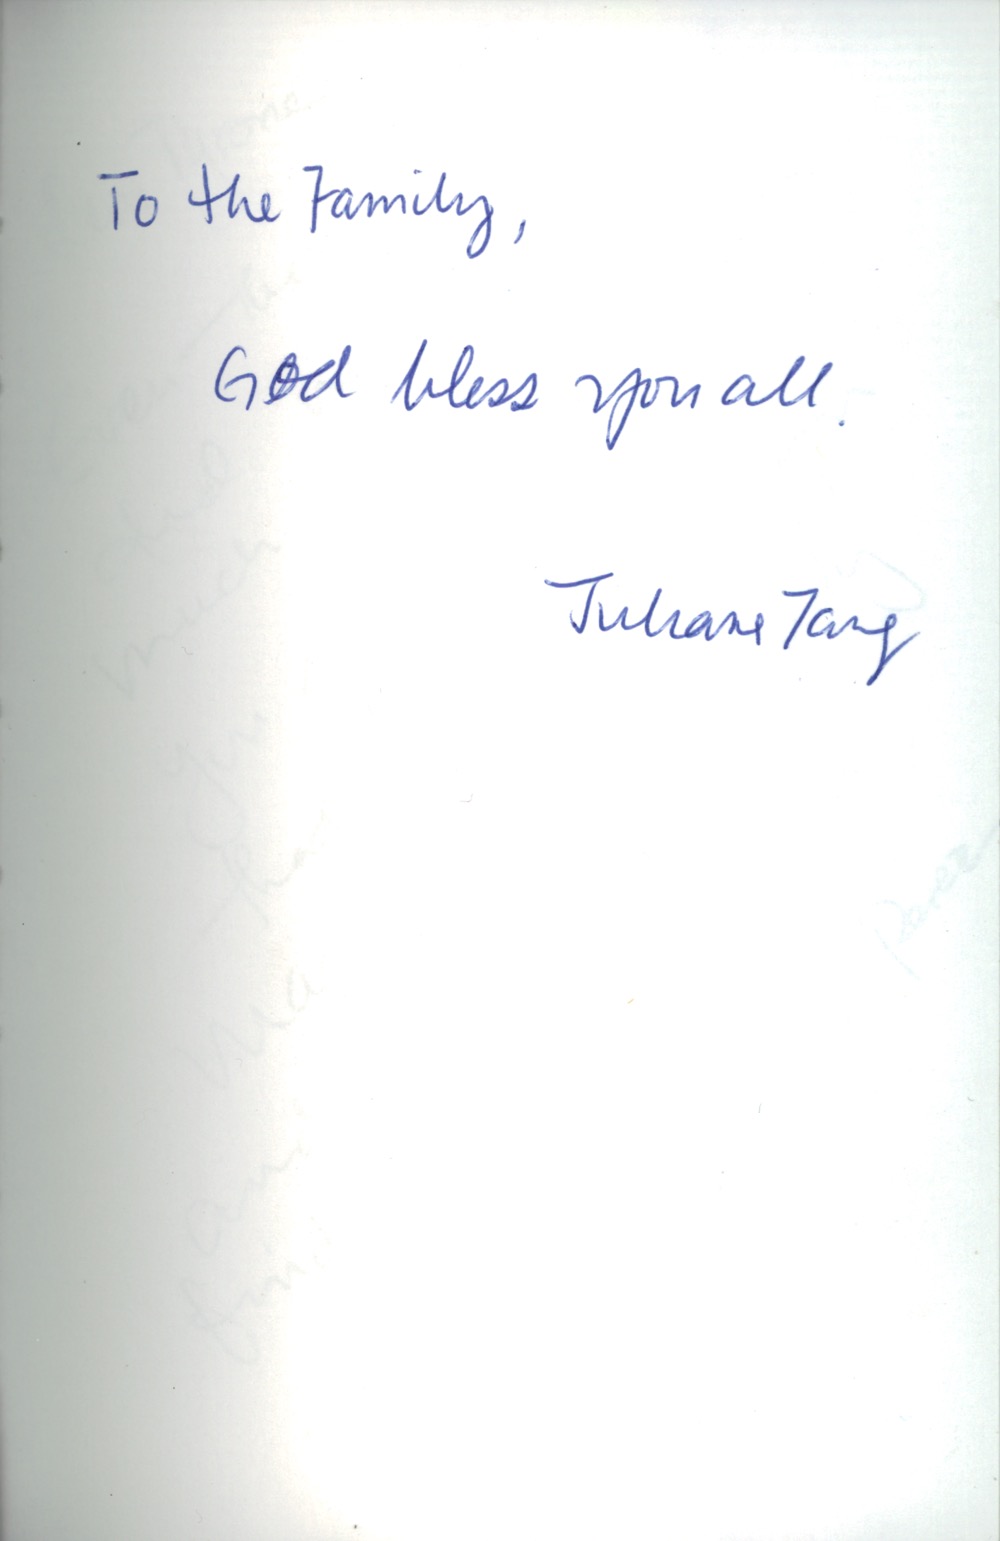 To the Family,
God bless you all.
Juliane Tang